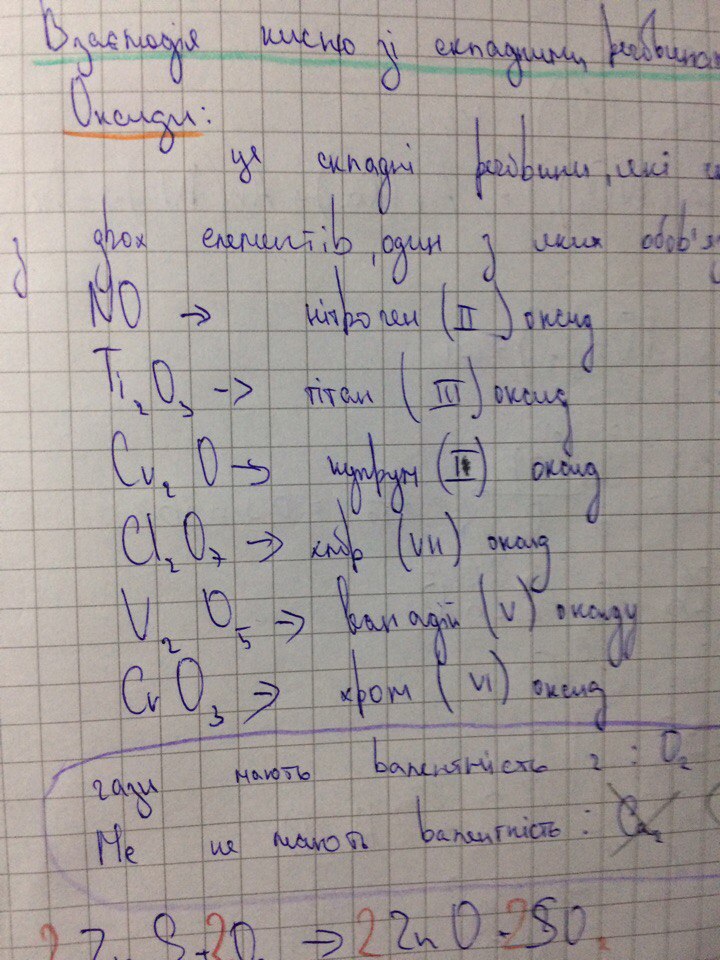 Взаємодія кисню зі складними речовинам
Оксиди:
це складні речовини, які
з двох елементів, один з яких обов'яз
NO → нітроген (II) оксид
Ti₂O₃ -> тітан (III) оксид
Cu₂O → купрум (I) оксид
Cl₂O₇ → хлор (VII) оксид
V₂O₅ → ванадій (V) оксиду
CrO₃ → хром (VI) оксид
гази мають валентність 2 : O₂
Me не мають валентність : Ca₂
2ZnS+2O₂ → 2ZnO+2SO₂